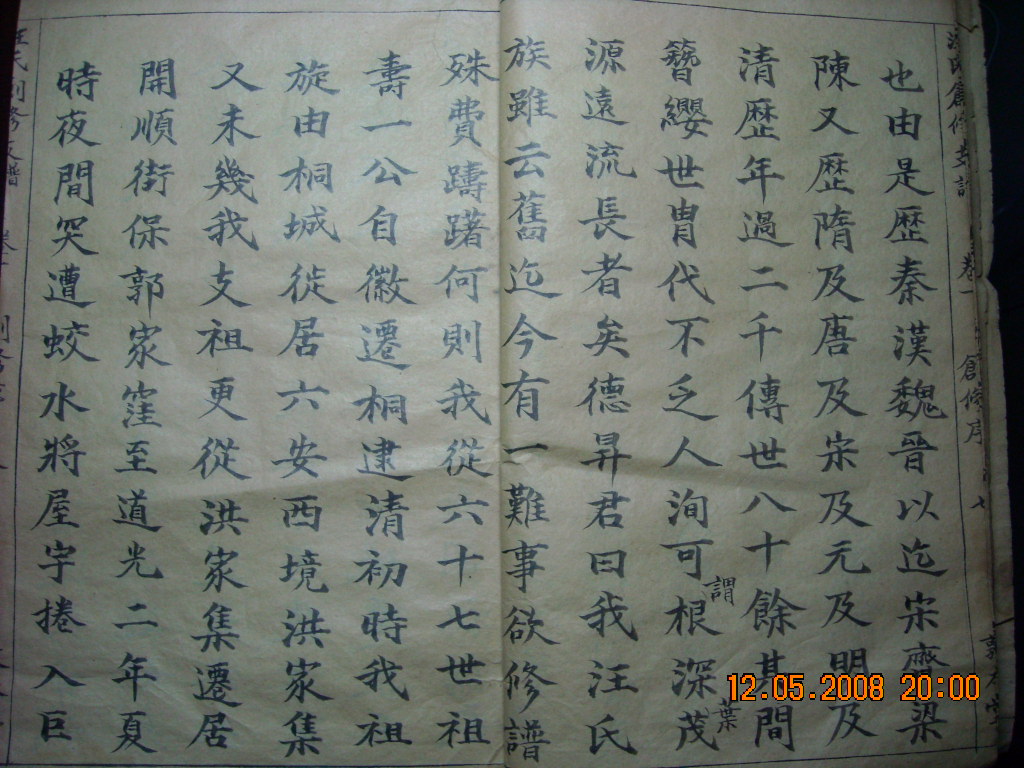 也由是歷秦漢魏晉以迄宋齊梁
陳又歷隋及唐及宋及元及明及
清歷年過二千傳世八十餘其間
簪纓世冑代不乏人洵可謂根深葉茂
源遠流長者矣德昇君曰我汪氏
族雖云舊迄今有一難事欲修譜
殊費躊躇何則我從六十七世祖
壽一公自徽遷桐逮清初時我祖
旋由桐城徙居六安西境洪家集
又未幾我支祖更從洪家集遷居
開順街保郭家窪至道光二年夏
時夜間突遭蛟水將屋宇捲入巨
12.05.2008 20:00